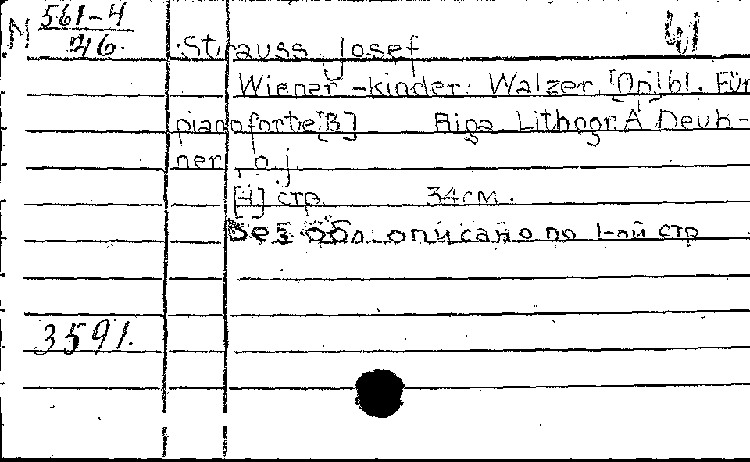 М 561-4
46.
Strauss Josef
Wiener-kinder. Walzer [Op]61. Für
pianoforte [B] Riga Lithogr. A Deub-
ner, o. j.
[4] стр 34см.
Без обл. описано по 1-ой стр
3591.